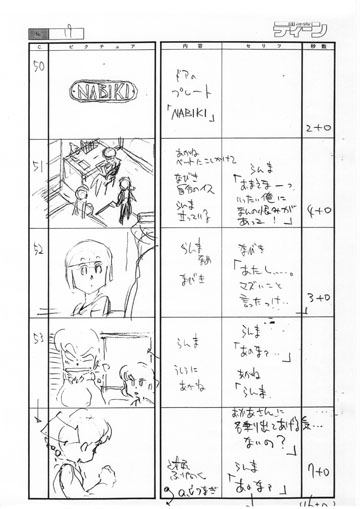 19
ディーン
C
ピクチュア
内容
セリフ
秒数
50
NABIKI
ドアの
プレート
「NABIKI」
2+0
51
あかね
ベットにこしかけて
なびき
自分のイス
らんま
立っている
らんま
「あのなーっ
いったい俺に
なんの恨みが
あって!」
4+0
52
らんま
なめ
なびき
なびき
「あたし……。
マズいこと
言ったっけ…」
3+0
53
らんま
うしろに
あかね
らんま
「あのな?…」
あかね
「らんま、
おかあさんに
名乗り出てあげ
ないの?」
らんま
「あのな?」
7+0